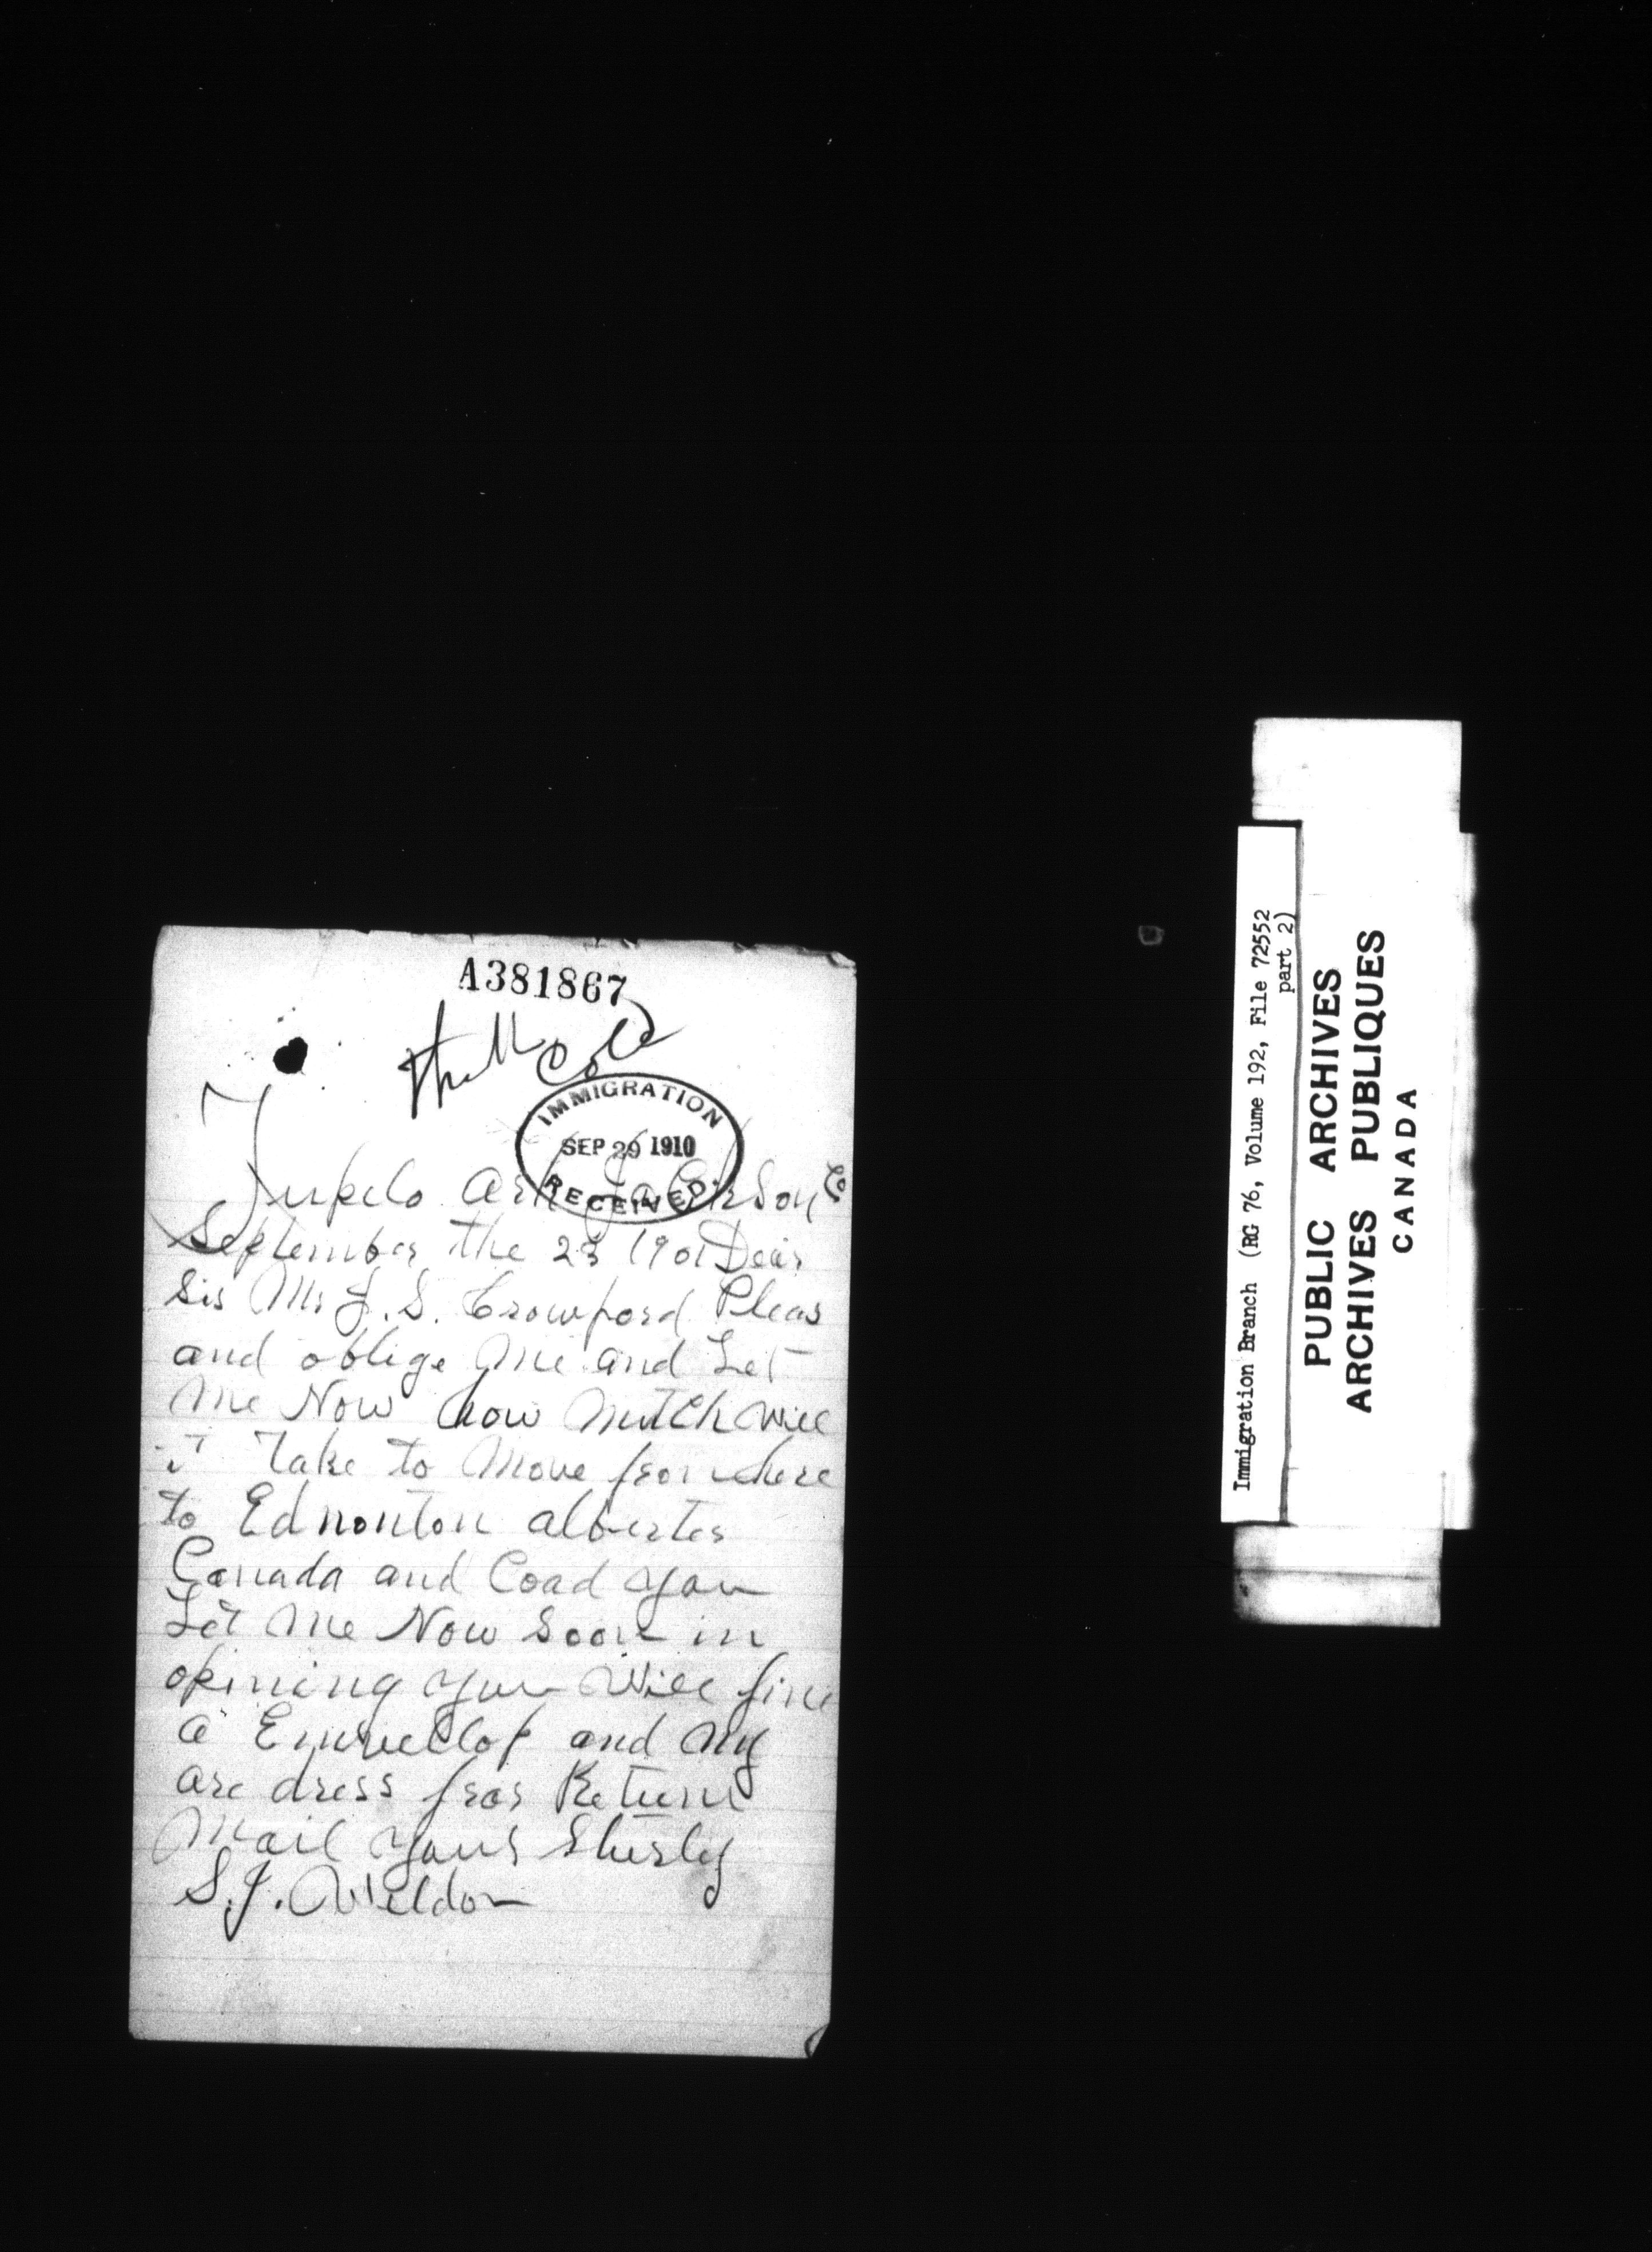 A381867
IMMIGRATION
SEP 29 1910
RECEIVED
Tupelo Ark Jackson Co
September the 23 1901 Dear
Sir Mr J. S. Crowford Pleas
and oblige Me and Let
Me Now how Mutch Will
it Take to Move from here
to Ednonton alberter
Canada and Coad you
Let Me Now Soon in
opining you Will fine
a Envellop and My
are dress fror Return
Mail yours
S. J. Weldon
Immigration Branch (RG 76, Volume 192, File 72552
part 2)
PUBLIC ARCHIVES
ARCHIVES PUBLIQUES
CANADA